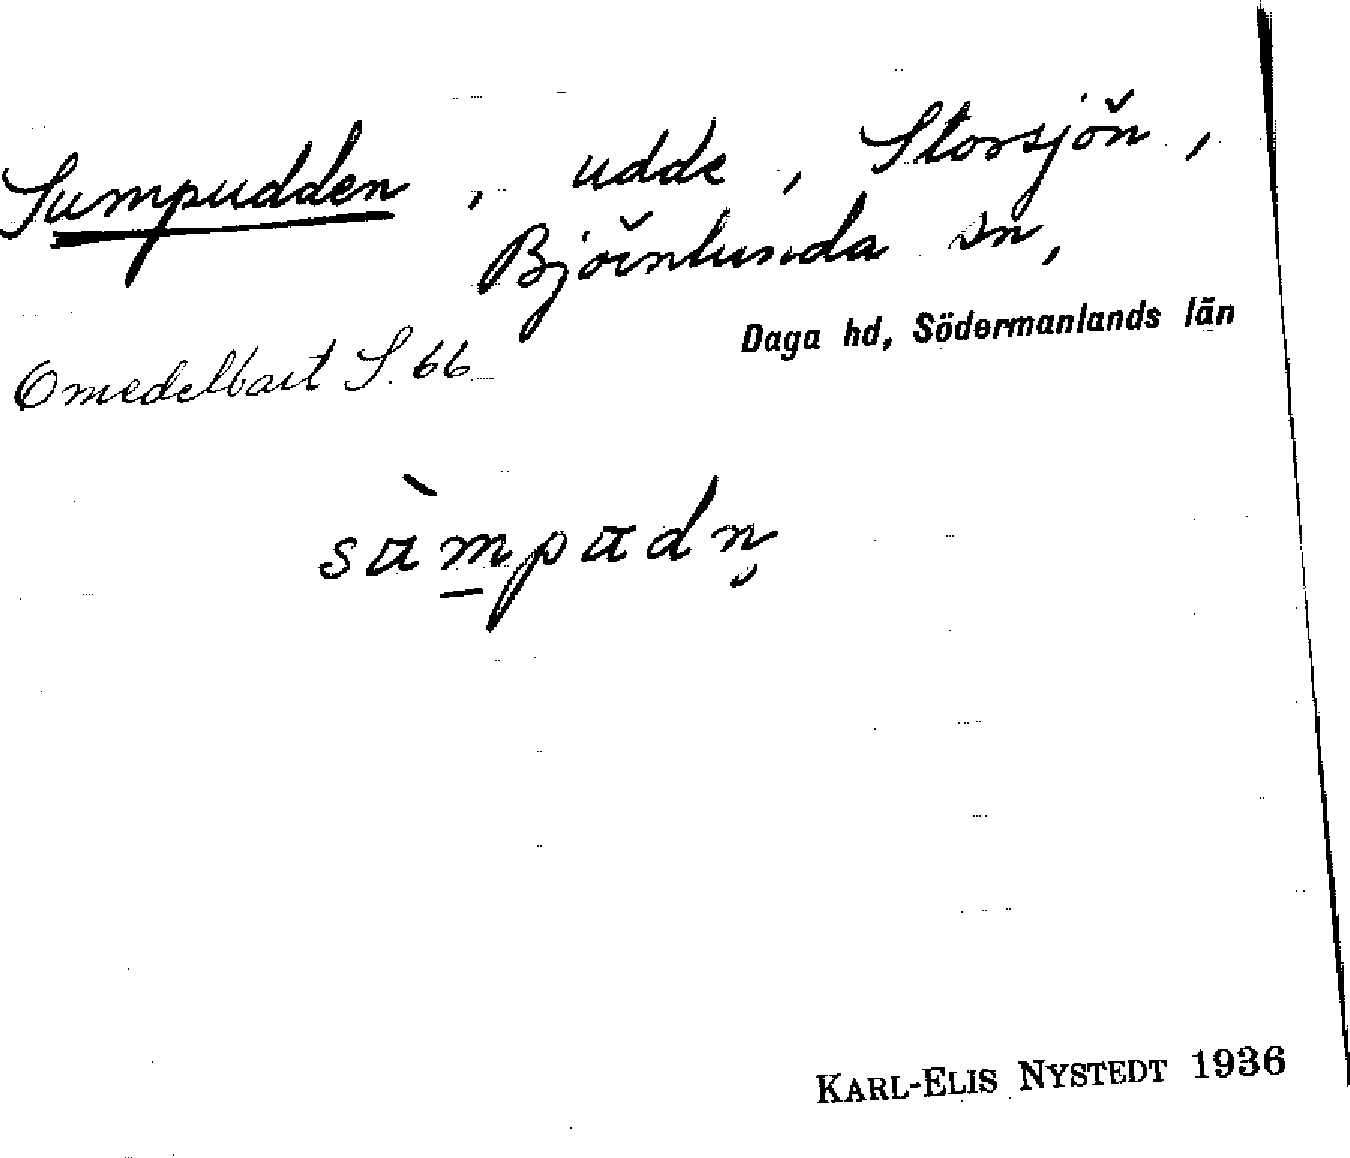 Sumpudden, udde, Storsjön,
Björnlunda sn,
Daga hd, Södermanlands län
Omedelbart S. 66
sùm̠pudn̥
KARL-ELIS NYSTEDT 1936